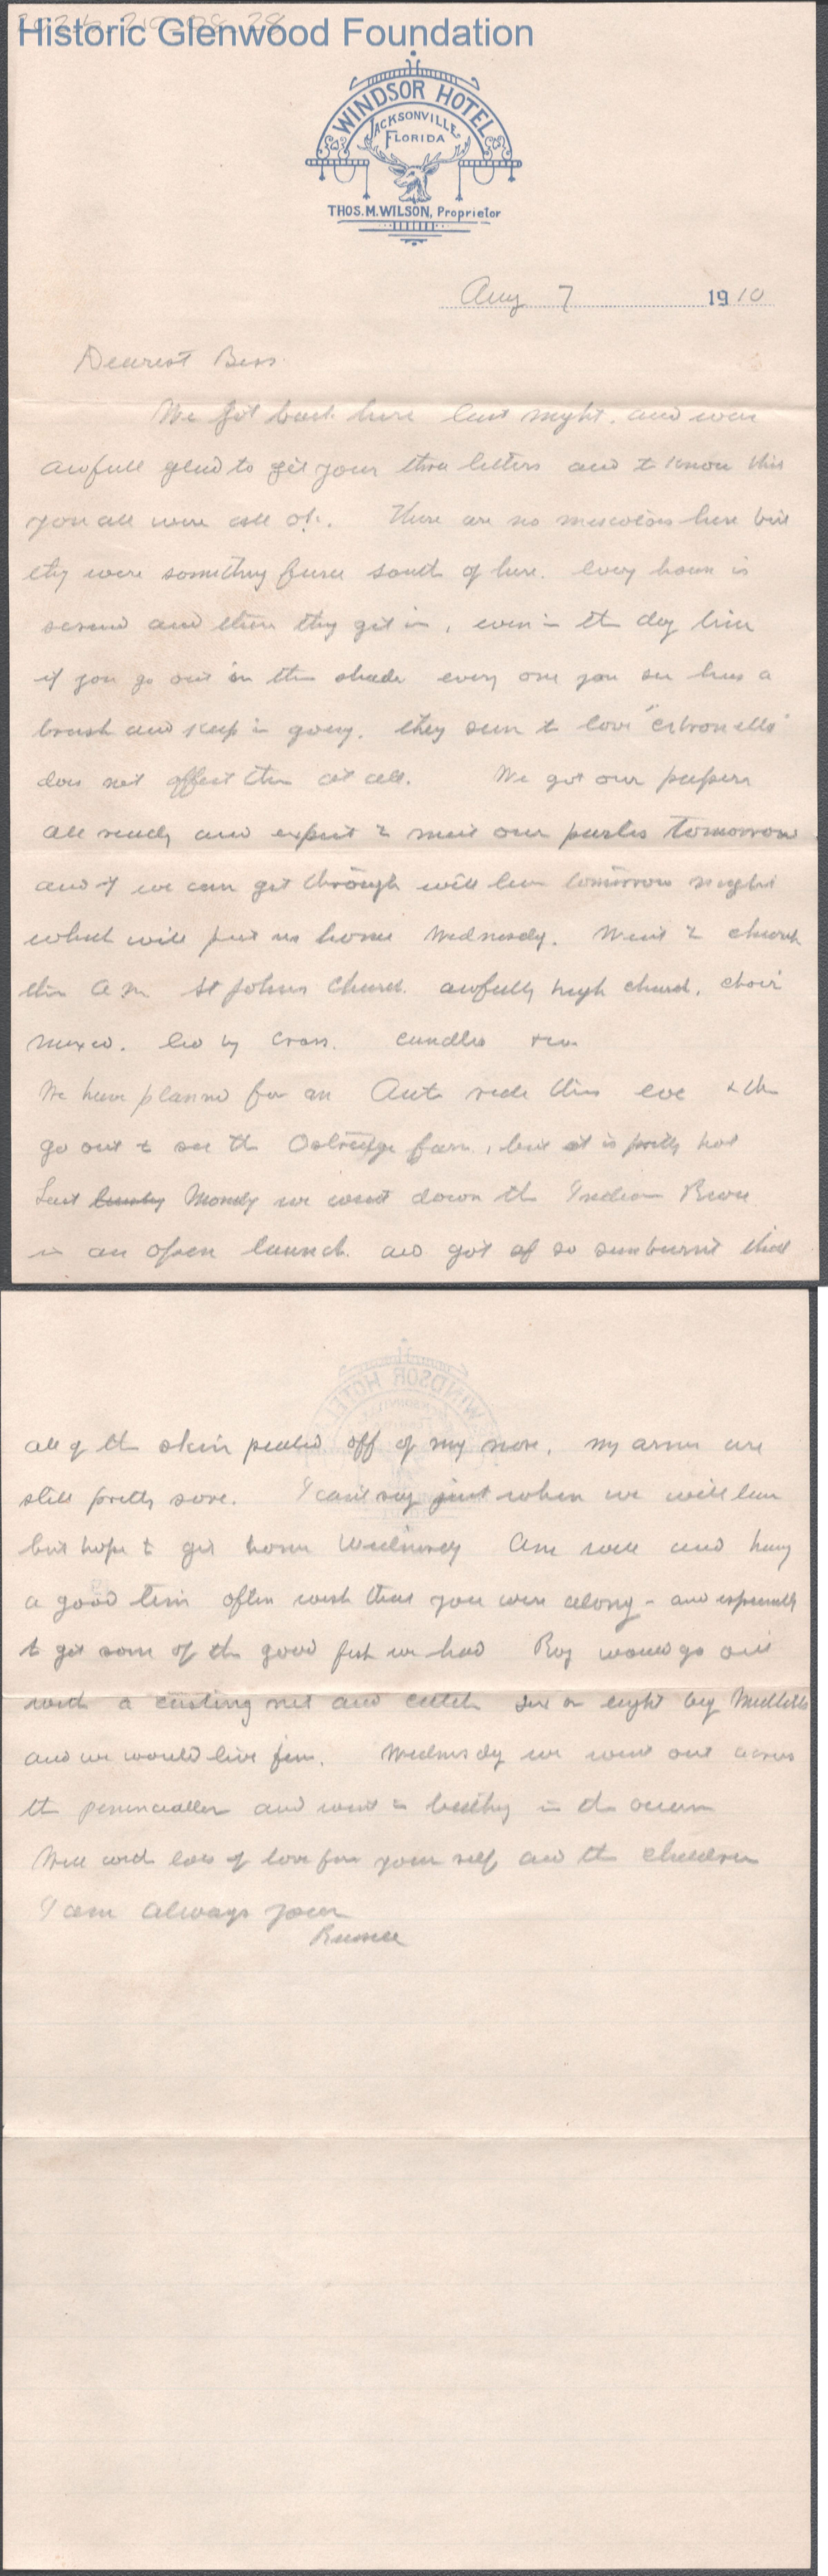 Historic Glenwood Foundation
WINDSOR HOTEL
JACKSONVILLE
FLORIDA
THOS. M. WILSON, Proprietor
Aug 7 1910
Dearest Bess
We got back here last night, and was
awfull glad to get your three letters and to know that
you all were all ok. There are no muscetoes here but
they were something furce south of here. every house is
screend and then they get in, even in the day time
if you go out in the shade every one you see has a
brush and keep it going. they seem to love "citronella"
does not affect them at all. We got our papers
all ready and expect to meet our parties tomorrow
and if we can get through will leave tomorrow night
which will put us home Wednesdy. Went to church
this A.M. St Johns Church. awfully high church, choir
mixed. led by cross. candles
We have planned for an Auto ride this eve
go out to see the Ostridge farm, but it is pretty hot
Last Mondy we went down the Indian River
in an open launch. and got so sunburnt that
all of the skin pealed off of my nose, my arms are
still pretty sore. I cant say just when we will leave
but hope to get home Wednesdy Am well and having
a good time often wish that you were along - and especially
to get some of the good fish we had Roy would go out
with a casting net and catch six or eight big Mulletts
and we would live fine. Wednesdy we went out across
the and went in bathing in the ocean
Well with lots of love for your self and the children
I am always your
Russell